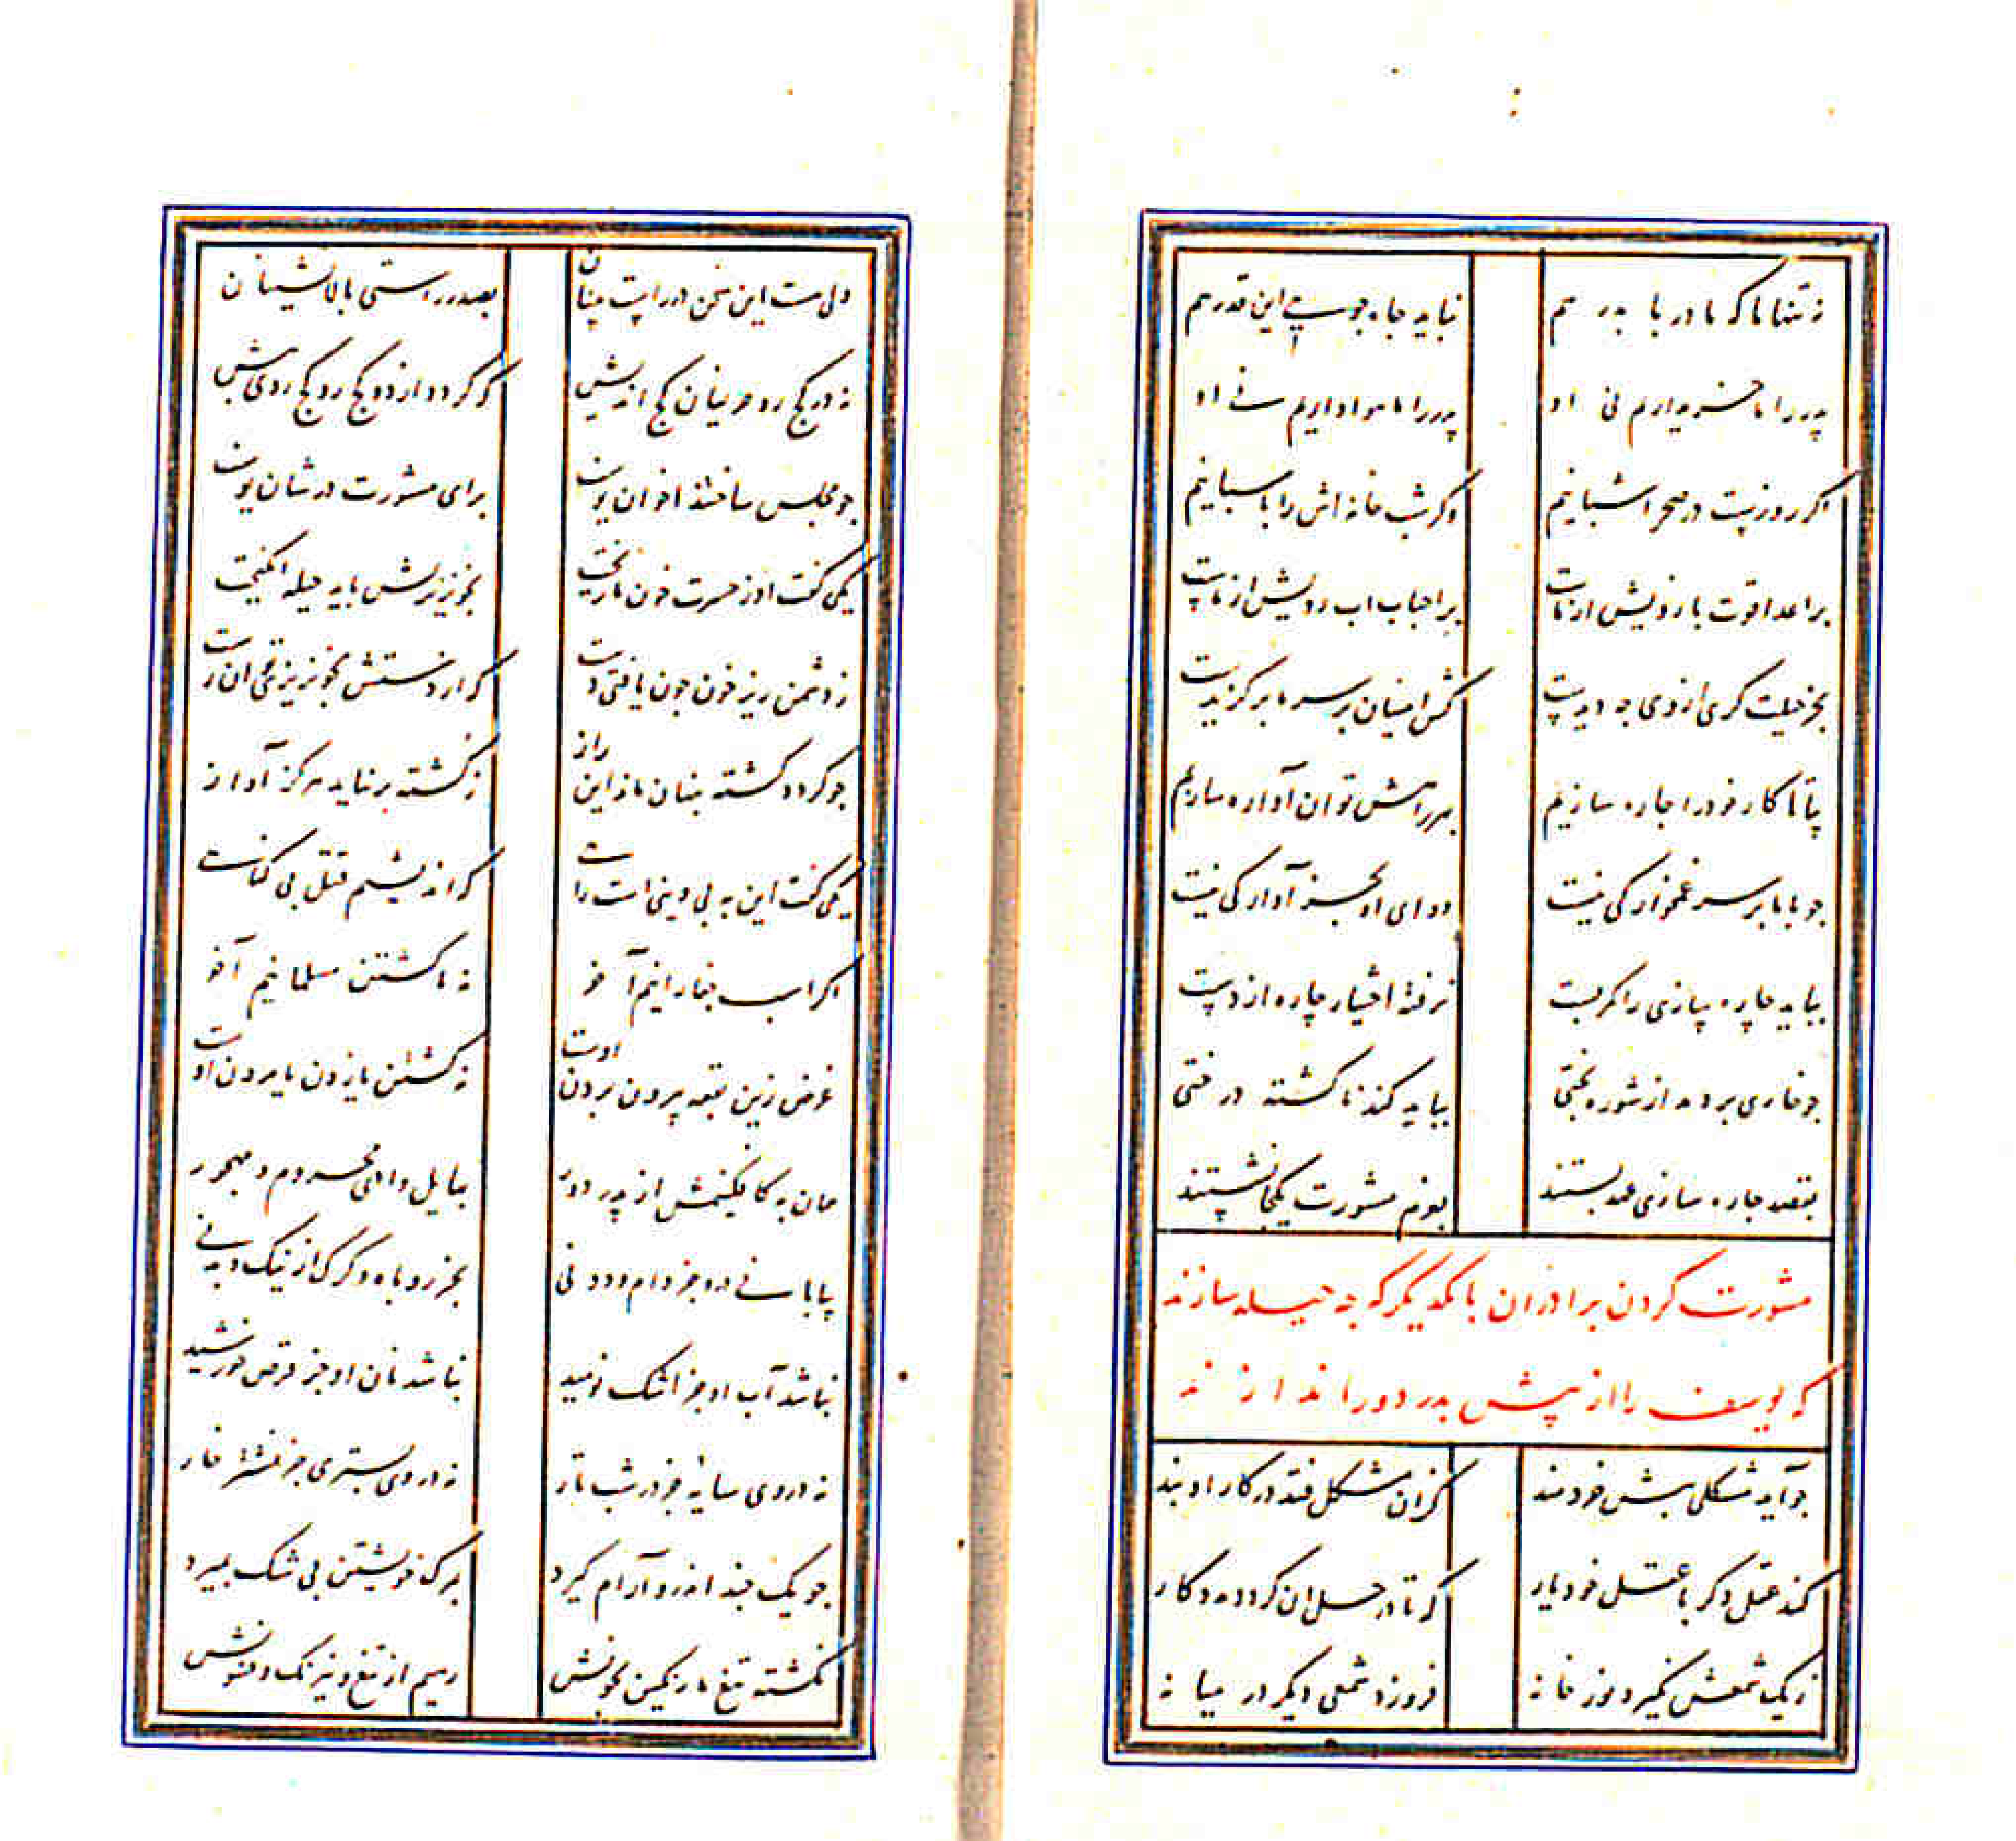 نه تنها ما که مادر با پدر هم نباید جاه جویی این قدر هم
پدر را ما خریداریم نی او پدر را ما هوا داریم نی او
اکر روزست در صحرا شبانیم وکر شب خانه اش را پاسبانیم
بر اعدا قوت بازویش از ماست بر احباب اب رویش از ماست
بجز حیلت کری از وی جه دیدست کش اینسان بر سر ما بر کزیدست
بیا تا کار خود را جاره سازیم بهر راهش توان آواره سازیم
جو با ما بر سر غمخوارکی نیست دوای او بجز آوارکی نیست
بباید چاره سازی را کمر بست نرفته اختیار چاره از دست
جو خاری بر دمد از شوره بختی بباید کند ناکشته درختی
بقصد جاره سازی عهد بستند بعزم مشورت یکجا نشستند
مشورت کردن برادران با یکدیکر که جه حیله سازند
که یوسف را از پیش پدر دور اندازند
جو آید مشکلی پیش خردمند کزان مشکل فتد در کار او بند
کند عقل دکر با عقل خود یار که تا در حل ان کردد مدد کار
ز یک شمعش نکیرد نور خانه فروزد شمعی دیکر در میانه
ولی هست این سخن در راست بینان بصدر راستی بالا نشینان
نه در کج رو حریفان کج اندیش که کردد از دو کج رو کج روی بیش
جو مجلس ساختند اخوان یوسف برای مشورت در شان یوسف
یکی کفت او ز حسرت خون ما ریخت بخونریزیش باید حیله انکیخت
ز دشمن ریز خون جون یافتی دست که از دستش بخونریزی توان رست
جو کردد کشته پنهان ماند این راز ز کشته بر نیاید هرکز آواز
یکی کفت این به بی دینی است راه است که اندیشیم قتل بی کناهست
اکر اسب جفا رانیم آخر نه با کشتن مسلمانیم آخر
غرض زین بقعه بیرون بردن اوست نه کشتن یا زدن یا مردن اوست
همان به کافکنیمش از پدر دور بهایل وادی محروم و مهجور
بیابانی درو جز دام و دد نی بجز روباه و کرک از نیک و بد نی
نباشد آب او جز اشک نومید نباشد نان او جز قرص خورشید
نه در وی سایه جز در شب تار نه در وی بستری جز نشتر خار
جو یک جند اندرو آرام کیرد بمرک خویشتن بی شک بمیرد
نکشته تیغ ما رنکین بخونش رهیم از تیغ و نیرنک و فسونش